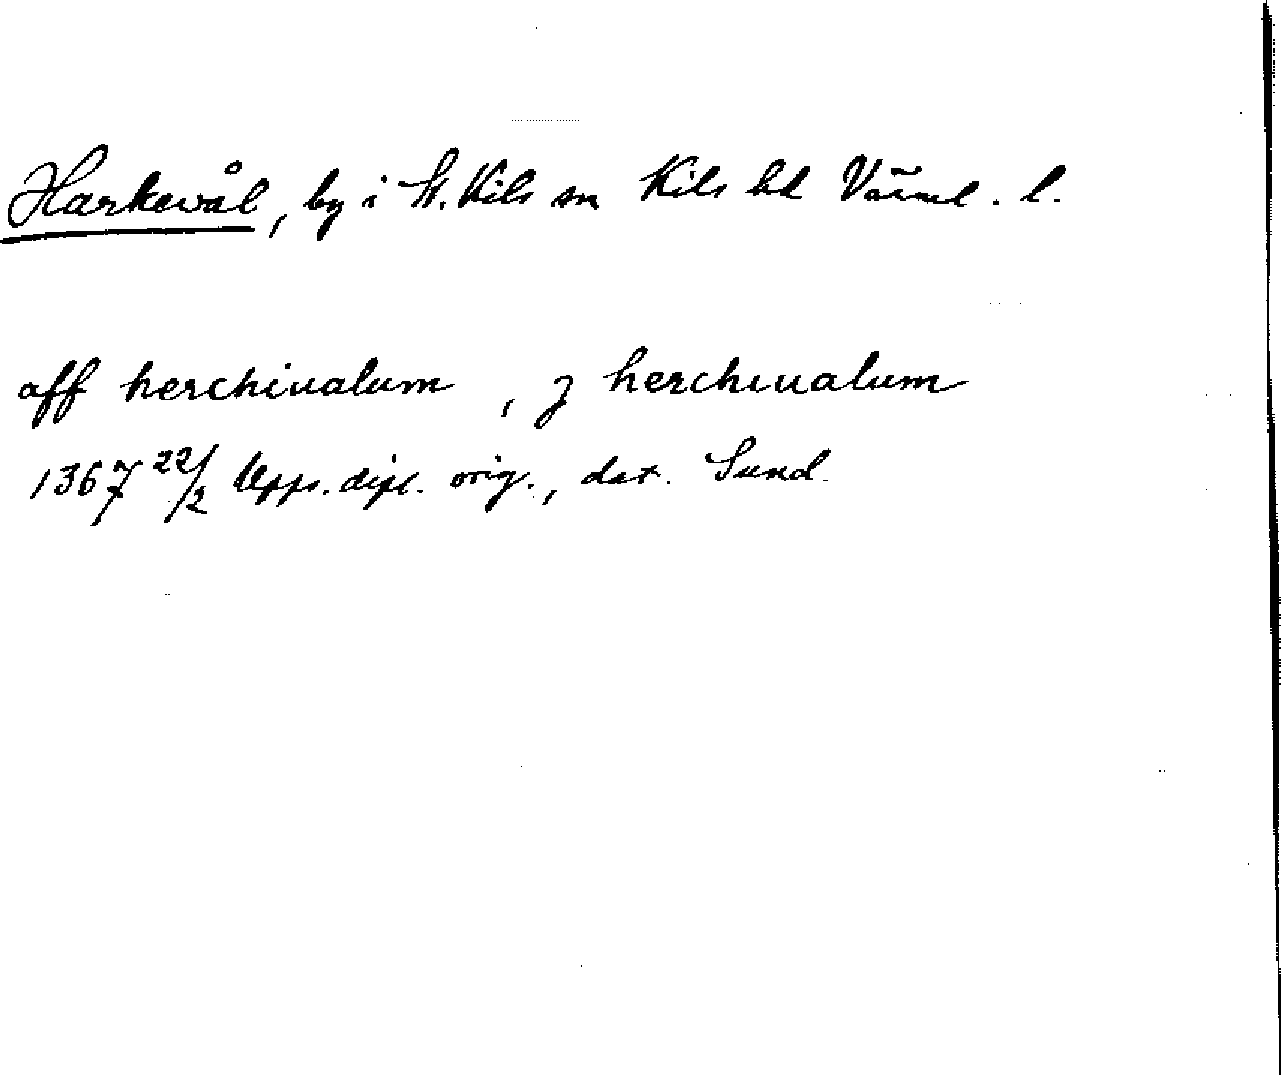 Harkevål, by i St. Kils sn Kils hd Värml. l.
aff herchiualum, j herchiualum
1367 22/2 Upps. dipl. orig., dat. Sund.